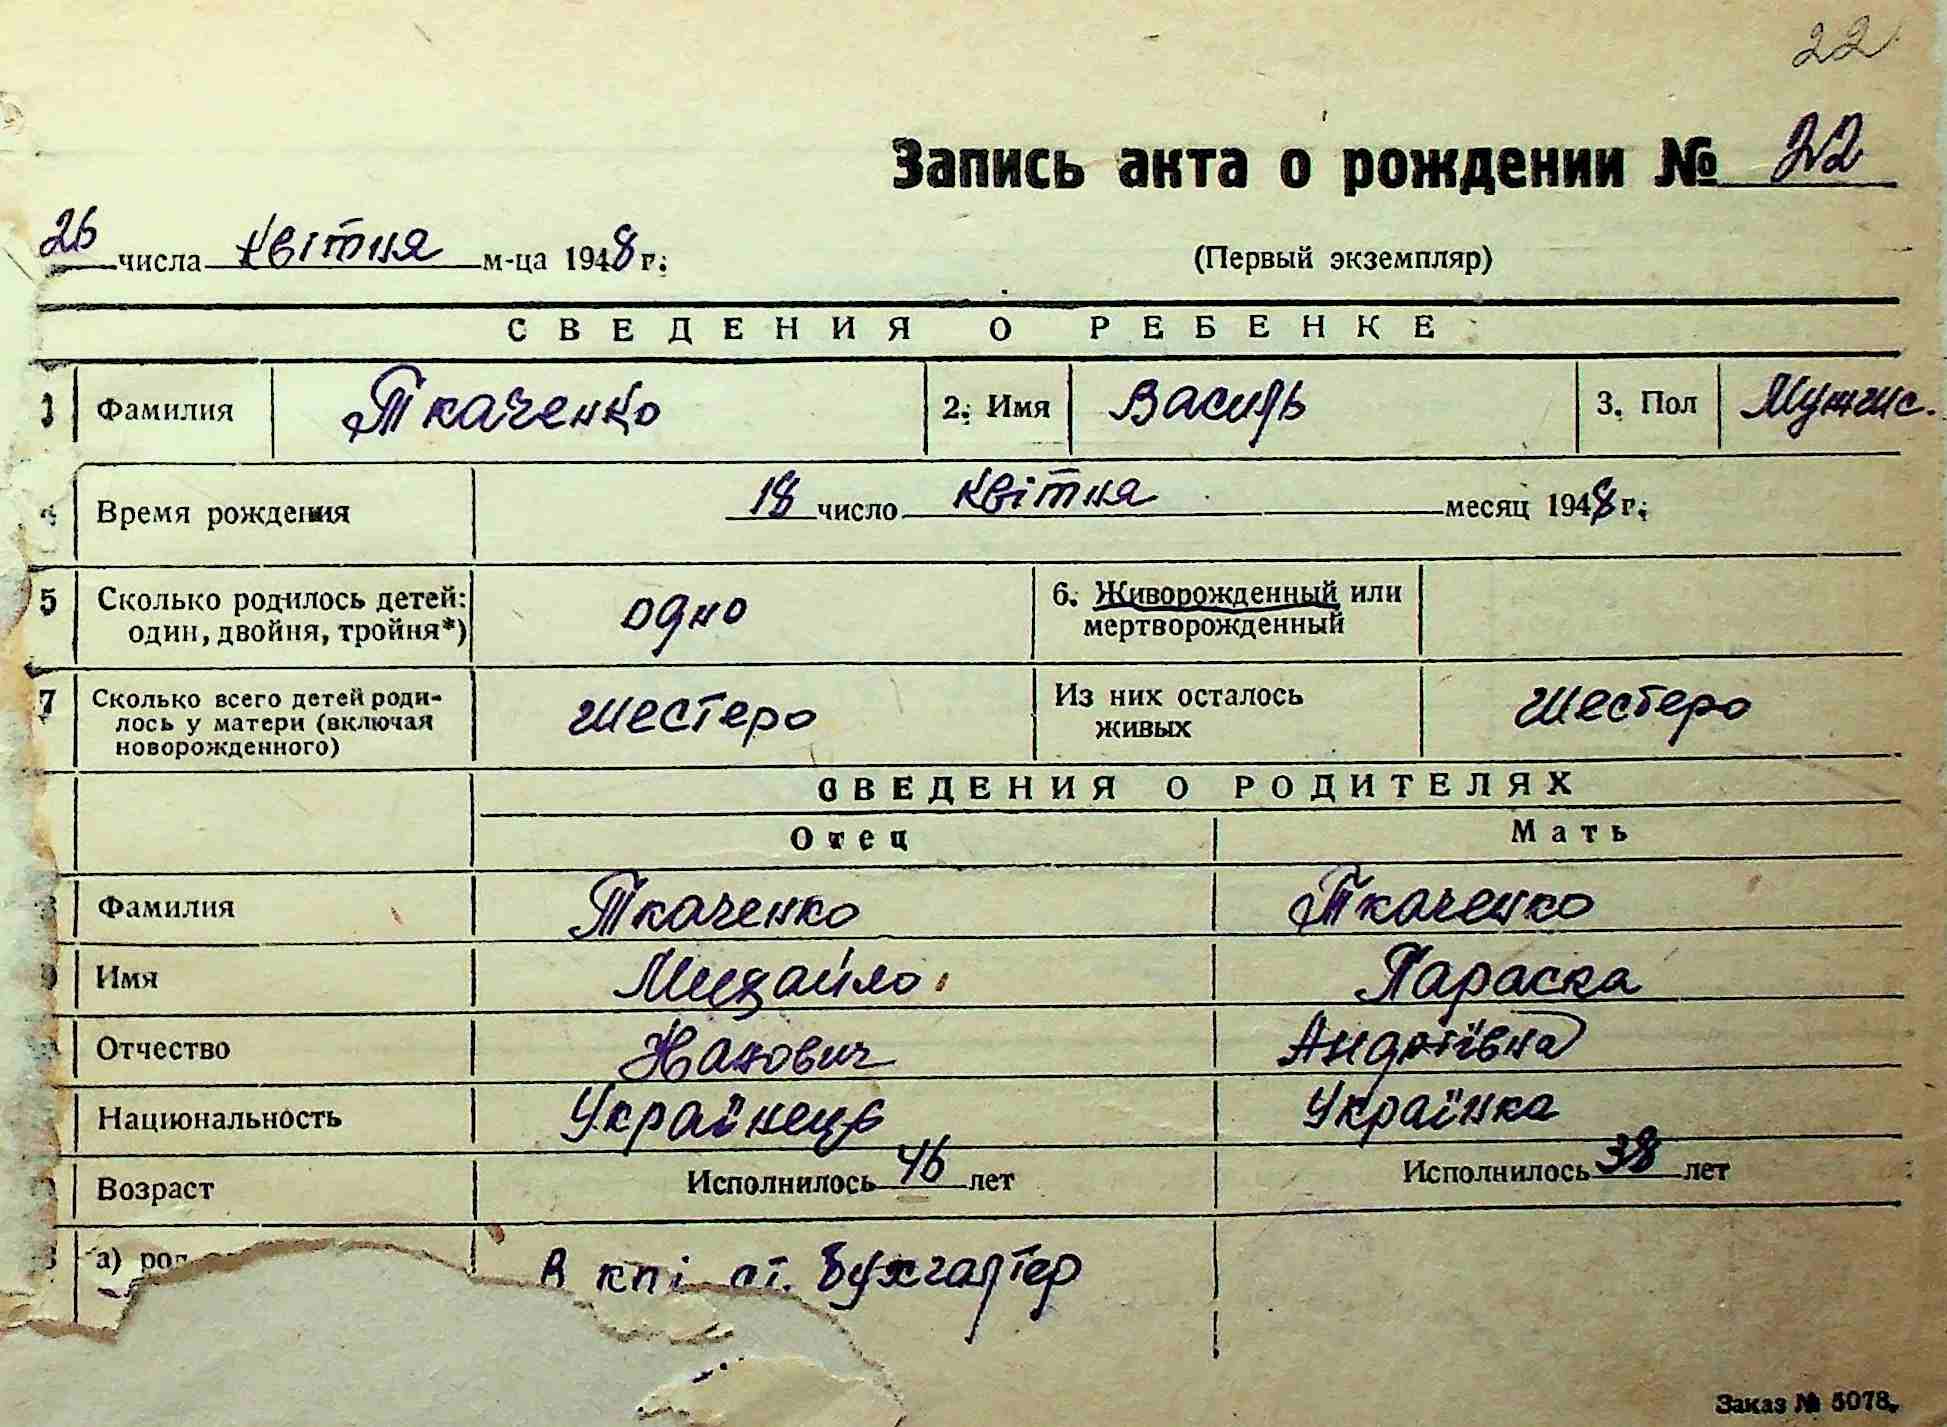 22
Запись акта о рождении № 22
26 числа квітня м-ца 1948 г.
(Первый экземпляр)
СВЕДЕНИЯ О РЕБЕНКЕ
1 Фамилия Ткаченко 2. Имя Василь 3. Пол Мужчис.
4 Время рождения 18 число квітня месяц 1948 г.
5 Сколько родилось детей: один, двойня, тройня*) одно 6. Живорожденный или мертворожденный
7 Сколько всего детей родилось у матери (включая новорожденного) шестеро Из них осталось живых шестеро
СВЕДЕНИЯ О РОДИТЕЛЯХ
Отец Мать
Фамилия Ткаченко Ткаченко
9 Имя Михайло Параска
Отчество Андріївна
Национальность Українець Українка
Возраст Исполнилось 46 лет Исполнилось 38 лет
а) род В кпі ст. бухгалтер
Заказ № 5078.